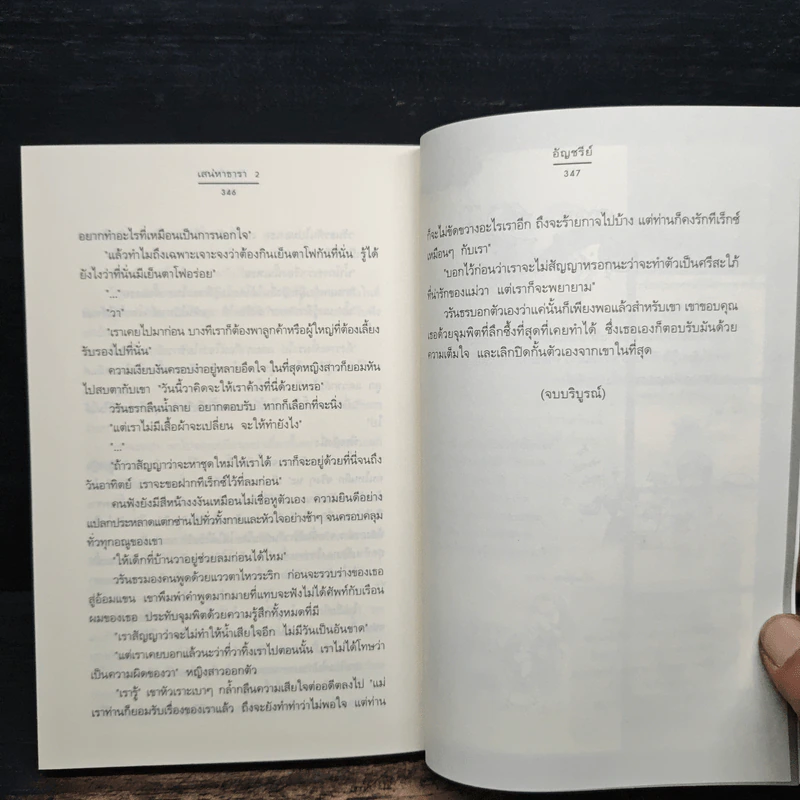 เสน่หาธารา 2
346
อยากทำอะไรที่เหมือนเป็นการนอกใจ"
"แล้วทำไมถึงเฉพาะเจาะจงว่าต้องกินเย็นตาโฟกันที่นั่น รู้ได้
ยังไงว่าที่นั่นมีเย็นตาโฟอร่อย"
"..."
"วา"
"เราเคยไปมาก่อน บางทีเราก็ต้องพาลูกค้าหรือผู้ใหญ่ที่ต้องเลี้ยง
รับรองไปที่นั่น"
ความเงียบงันครอบงำอยู่หลายอึดใจ ในที่สุดหญิงสาวก็ยอมหัน
ไปสบตากับเขา "วันนี้วาคิดจะให้เราค้างที่นี่ด้วยเหรอ"
วรันธรกลืนน้ำลาย อยากตอบรับ หากก็เลือกที่จะนิ่ง
"แต่เราไม่มีเสื้อผ้าจะเปลี่ยน จะให้ทำยังไง"
"..."
"ถ้าวาสัญญาว่าจะหาชุดใหม่ให้เราได้ เราก็จะอยู่ด้วยที่นี่จนถึง
วันอาทิตย์ เราจะขอฝากทีเร็กซ์ไว้ที่ลมก่อน"
คนฟังยังมีสีหน้างงงันเหมือนไม่เชื่อหูตัวเอง ความยินดีอย่าง
แปลกประหลาดแตกซ่านไปทั่วทั้งกายและหัวใจอย่างช้าๆ จนครอบคลุม
ทั่วทุกอณูของเขา
"ให้เด็กที่บ้านวาอยู่ช่วยลมก่อนได้ไหม"
วรันธรมองคนพูดด้วยแววตาไหวระริก ก่อนจะรวบร่างของเธอ
สู่อ้อมแขน เขาพึมพำคำพูดมากมายที่แทบจะฟังไม่ได้ศัพท์กับเรือน
ผมของเธอ ประทับจุมพิตด้วยความรู้สึกทั้งหมดที่มี
"เราสัญญาว่าจะไม่ทำให้น้ำเสียใจอีก ไม่มีวันเป็นอันขาด"
"แต่เราเคยบอกแล้วนะว่าที่วาทิ้งเราไปตอนนั้น เราไม่ได้โทษว่า
เป็นความผิดของวา" หญิงสาวออกตัว
"เรารู้" เขาหัวเราะเบาๆ กล้ำกลืนความเสียใจต่ออดีตลงไป "แม่
เราท่านก็ยอมรับเรื่องของเราแล้ว ถึงจะยังทำท่าว่าไม่พอใจ แต่ท่าน
อัญชรีย์
347
ก็จะไม่ขัดขวางอะไรเราอีก ถึงจะร้ายกาจไปบ้าง แต่ท่านก็คงรักทีเร็กซ์
เหมือนๆ กับเรา"
"บอกไว้ก่อนว่าเราจะไม่สัญญาหรอกนะว่าจะทำตัวเป็นศรีสะใภ้
ที่น่ารักของแม่วา แต่เราก็จะพยายาม"
วรันธรบอกตัวเองว่าแค่นั้นก็เพียงพอแล้วสำหรับเขา เขาขอบคุณ
เธอด้วยจุมพิตที่ลึกซึ้งที่สุดที่เคยทำได้ ซึ่งเธอเองก็ตอบรับมันด้วย
ความเต็มใจ และเลิกปิดกั้นตัวเองจากเขาในที่สุด
(จบบริบูรณ์)